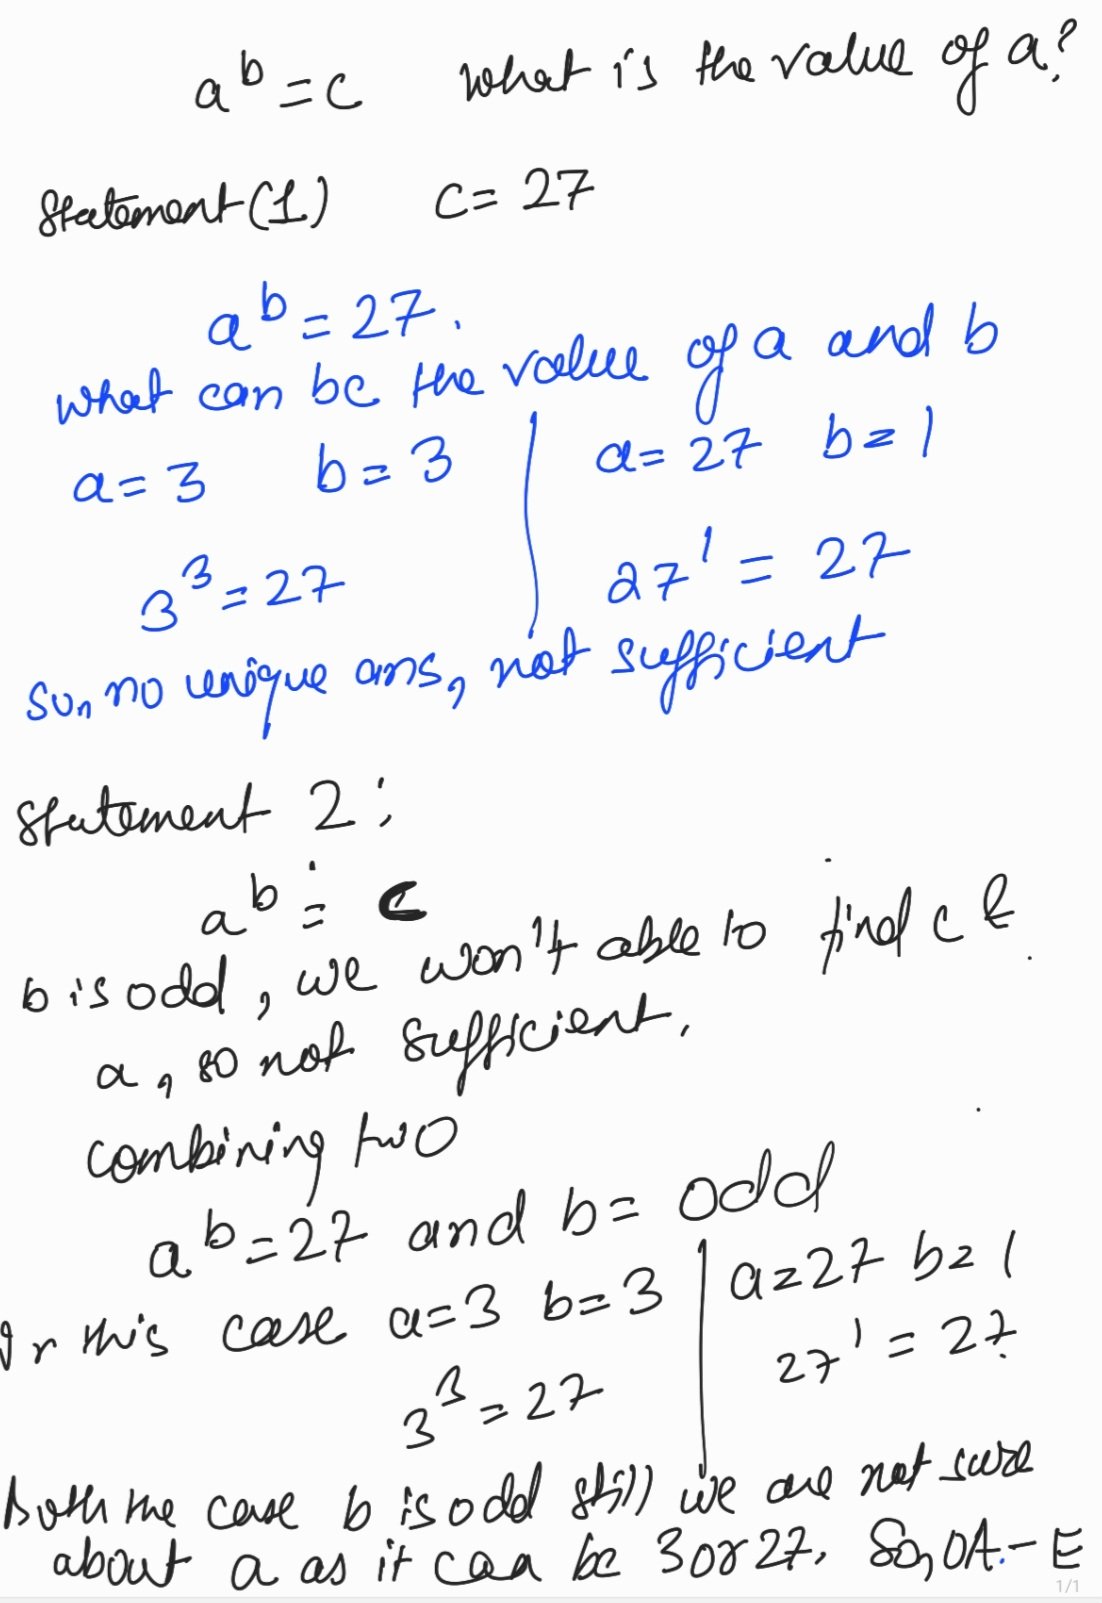 a^b = c what is the value of a?
Statement (1) c = 27
a^b = 27.
what can be the value of a and b
a = 3 b = 3 a = 27 b = 1
3^3 = 27 27^1 = 27
So, no unique ans, not sufficient
Statement 2:
a^b = c
b is odd, we won't able to find c &
a, so not sufficient.
combining two
a^b = 27 and b = odd
In this case a = 3 b = 3 a = 27 b = 1
3^3 = 27 27^1 = 27
Both the case b is odd still we are not sure
about a as it can be 3 or 27. So, OA - E
1/1